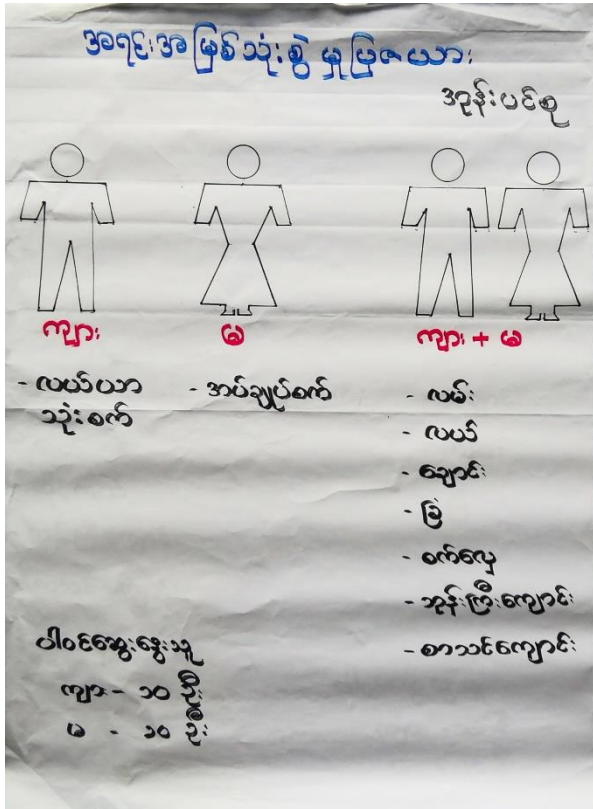 အရင်းအမြစ်သုံးစွဲမှုပြဇယား
အုန်းပင်စု
ကျား
မ
ကျား + မ
- လယ်ယာ
သုံးစက်
- အပ်ချုပ်စက်
- လမ်း
- လယ်
- ချောင်း
- ခြံ
- စက်လှေ
- ဘုန်းကြီးကျောင်း
- စာသင်ကျောင်း
ပါဝင်ဆွေးနွေးသူ
ကျား - ၁၀ ဦး
မ - ၁၀ ဦး